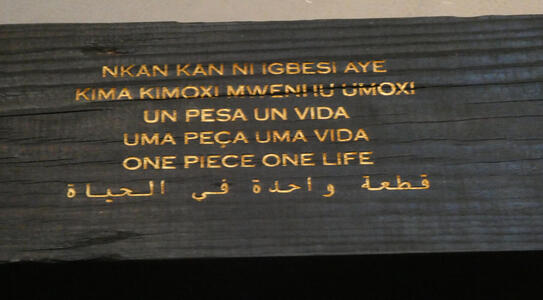 NKAN KAN NI IGBESI AYE
KIMA KIMOXI MWENHU UMOXI
UN PESA UN VIDA
UMA PEÇA UMA VIDA
ONE PIECE ONE LIFE
قطعة واحدة في الحياة